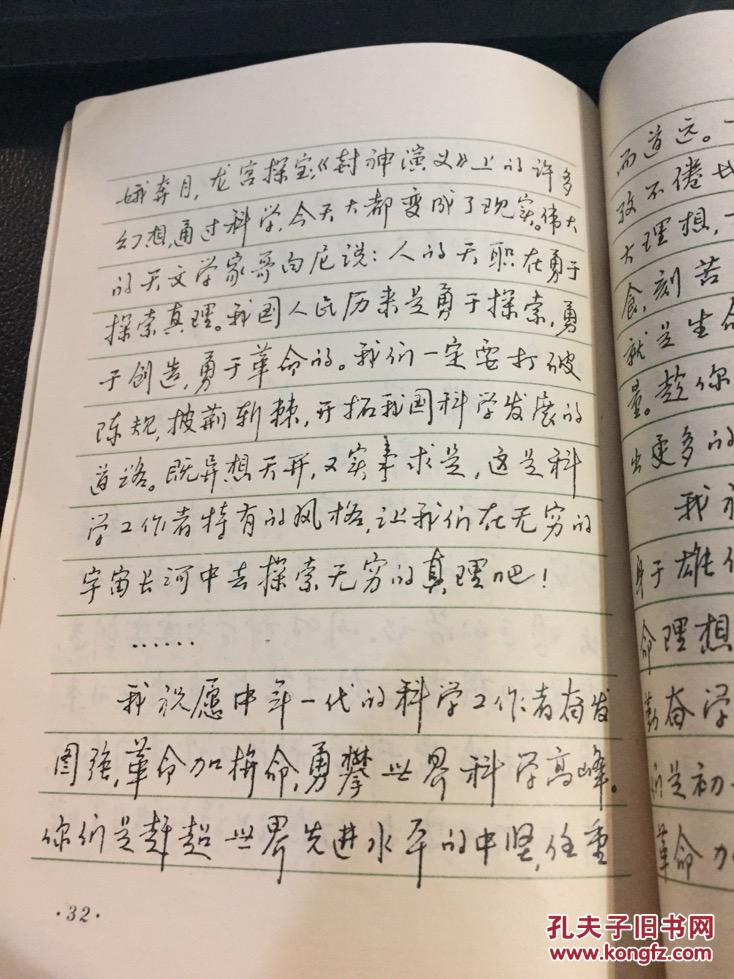 娥奔月，龙宫探宝，《封神演义》上的许多
幻想，通过科学，今天大都变成了现实。伟大
的天文学家哥白尼说：人的天职在勇于
探索真理。我国人民历来是勇于探索，勇
于创造，勇于革命的。我们一定要打破
陈规，披荆斩棘，开拓我国科学发展的
道路。既异想天开，又实事求是，这是科
学工作者特有的风格，让我们在无穷的
宇宙长河中去探索无穷的真理吧！
……
我祝愿中年一代的科学工作者奋发
图强，革命加拚命，勇攀世界科学高峰。
你们是赶超世界先进水平的中坚，任重
·32·
而道远。
孜不倦
大理想，
食，刻苦
就是生命
量。趁你
出更多的
我祝
身于雄伟
命理想
勤奋学
们是初
革命加
孔夫子旧书网
www.kongfz.com